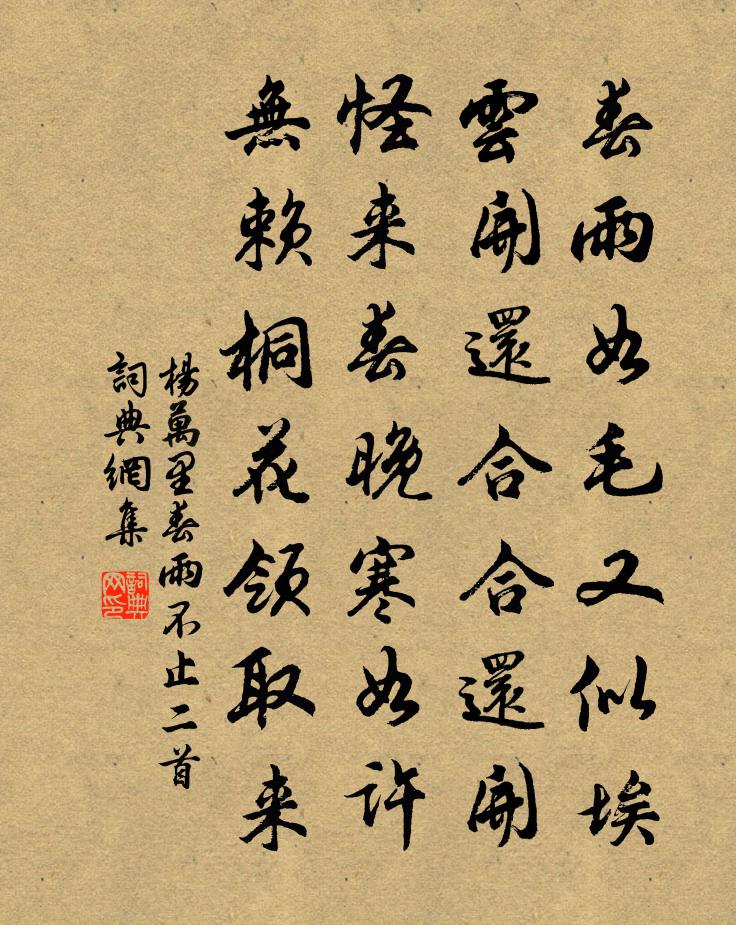 春雨如毛又似埃
雲開還合合還開
怪来春晚寒如許
無賴桐花領取来
楊萬里春雨不止二首
詞典網集
詞典網印